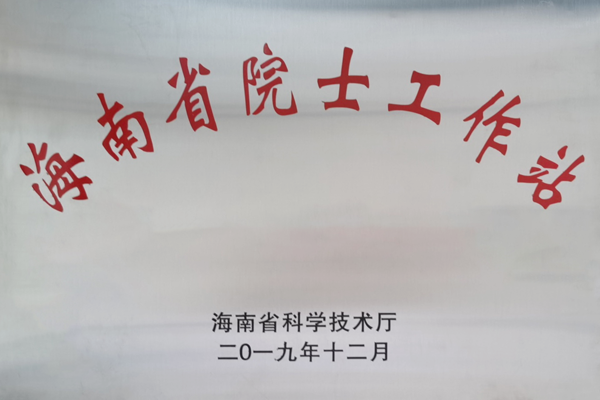 海南省院士工作站
海南省科学技术厅
二0一九年十二月